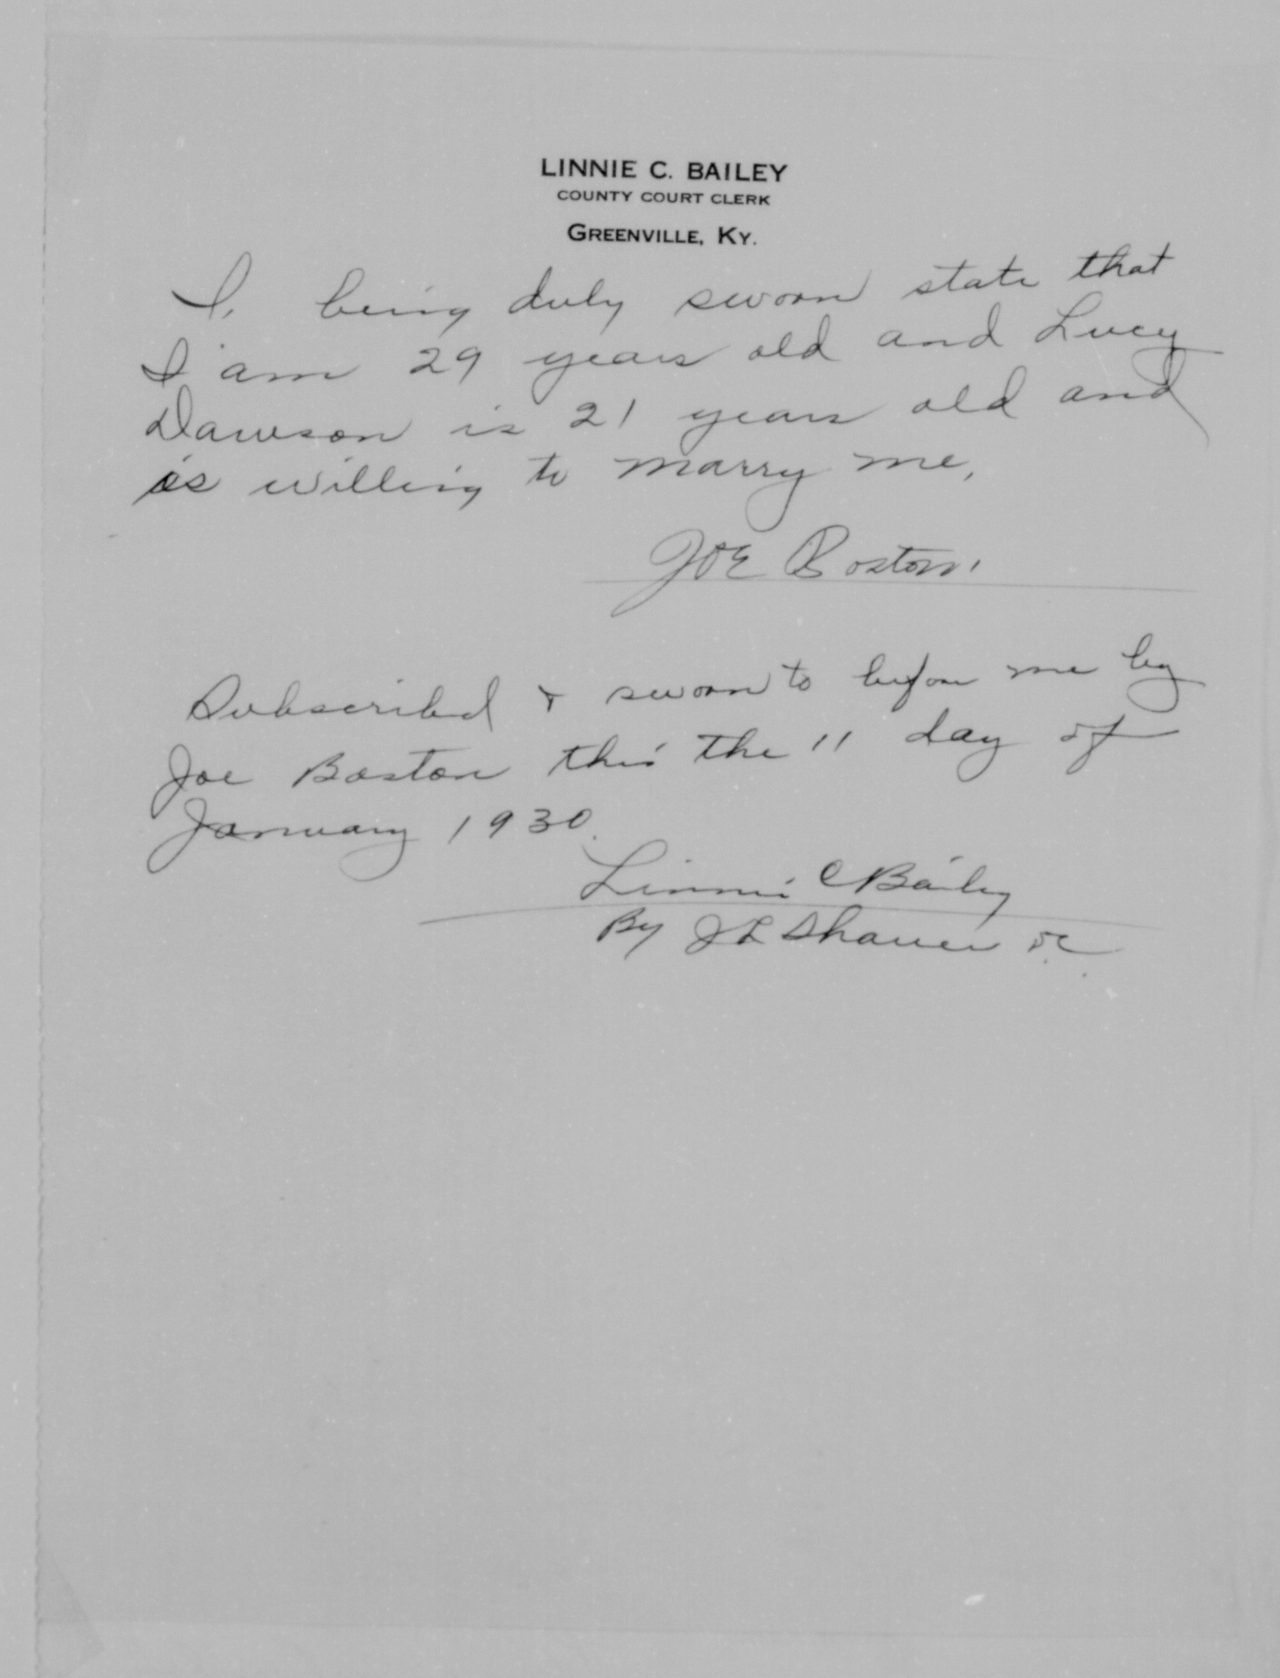 LINNIE C. BAILEY
COUNTY COURT CLERK
GREENVILLE, KY.
I, being duly sworn state that
I am 29 years old and Lucy
Dawson is 21 years old and
is willing to marry me,
JOE Boston.
Subscribed & sworn to before me by
Joe Boston this the 11 day of
January 1930.
Linnie C Bailey
By J L Shaver DC